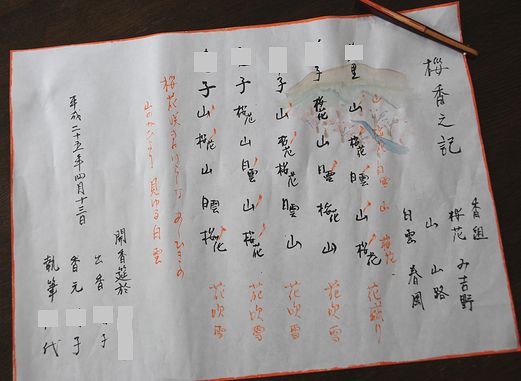 桜香之記
香組
桜花 み吉野
山 山路
白雲
白雲 山 桜花
里 山 桜花 白雲 山 桜花 花盛り
子 桜花 山 白雲 桜花 山 花吹雪
子 山 桜花 桜花 白雲 山 花吹雪
子 桜花 山 白雲 山 桜花 花吹雪
子 山 桜花 山 白雲 桜花 花吹雪
桜花咲きにけらしな あしひきの
山のかひより 見ゆる白雲
平成二十五年四月十三日
開香筵於
出香 子
香元 子
執筆 代